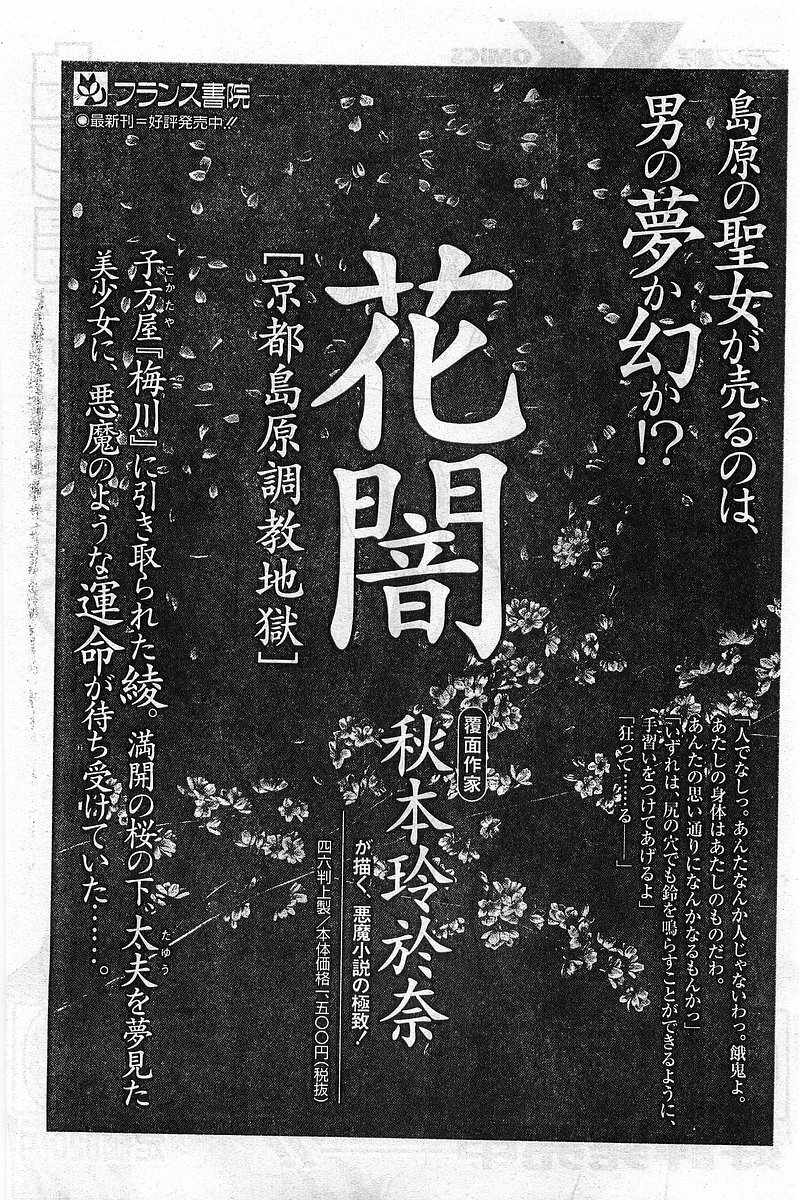 フランス書院
◉最新刊=好評発売中!!
島原の聖女が売るのは、
男の夢か幻か!?
花闇
[京都島原調教地獄]
子方屋『梅川』に引き取られた綾。満開の桜の下、太夫を夢見た
こかたや
たゆう
美少女に、悪魔のような運命が待ち受けていた……。
「人でなしっ。あんたなんか人じゃないわっ。餓鬼よ。
あたしの身体はあたしのものだわ。
あんたの思い通りになんかなるもんかっ」
「いずれは、尻の穴でも鈴を鳴らすことができるように、
手習いをつけてあげるよ」
「狂って……る――」
覆面作家
秋本玲於奈
が描く、悪魔小説の極致!
四六判上製/本体価格一、五〇〇円(税抜)